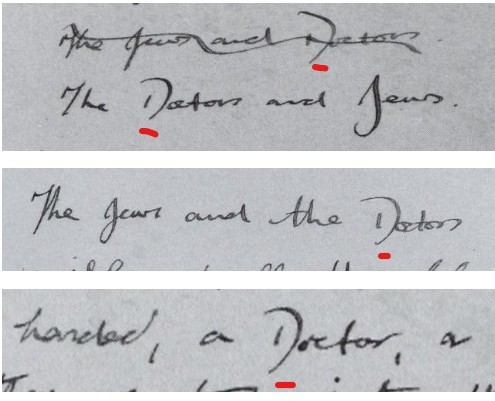 The Jews and Doctors.
The Doctors and Jews.
The Jews and the Doctors
handed, a Doctor, a